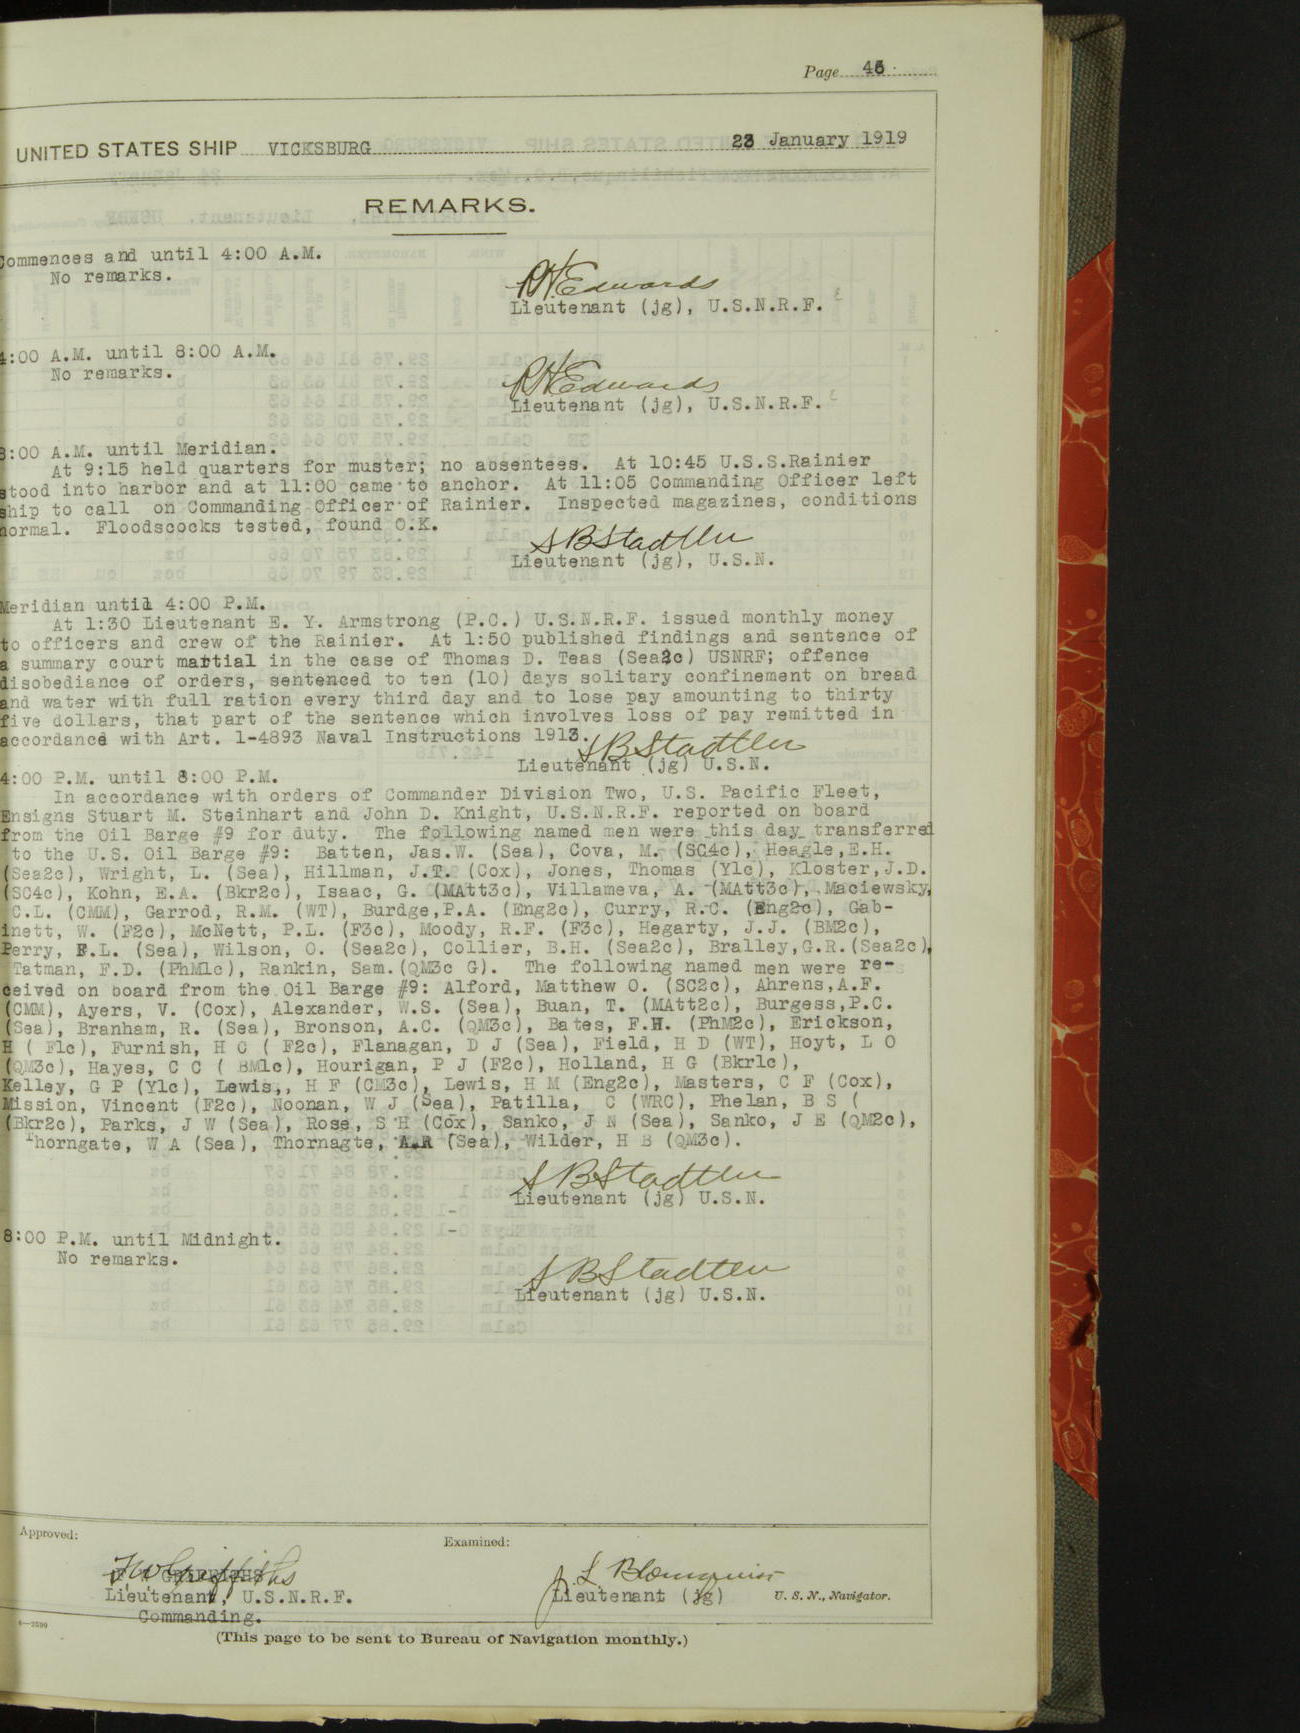 Page 46
UNITED STATES SHIP VICKSBURG 23 January 1919
REMARKS.
Commences and until 4:00 A.M.
No remarks.
RHEdwards
Lieutenant (jg), U.S.N.R.F.
4:00 A.M. until 8:00 A.M.
No remarks.
RHEdwards
Lieutenant (jg), U.S.N.R.F.
8:00 A.M. until Meridian.
At 9:15 held quarters for muster; no absentees. At 10:45 U.S.S.Rainier
stood into harbor and at 11:00 came to anchor. At 11:05 Commanding Officer left
ship to call on Commanding Officer of Rainier. Inspected magazines, conditions
normal. Floodscocks tested, found O.K.
S B Stadtler
Lieutenant (jg), U.S.N.
Meridian until 4:00 P.M.
At 1:30 Lieutenant E. Y. Armstrong (P.C.) U.S.N.R.F. issued monthly money
to officers and crew of the Rainier. At 1:50 published findings and sentence of
a summary court martial in the case of Thomas D. Teas (Sea2c) USNRF; offence
disobediance of orders, sentenced to ten (10) days solitary confinement on bread
and water with full ration every third day and to lose pay amounting to thirty
five dollars, that part of the sentence which involves loss of pay remitted in
accordance with Art. 1-4893 Naval Instructions 1913.
S B Stadtler
Lieutenant (jg) U.S.N.
4:00 P.M. until 8:00 P.M.
In accordance with orders of Commander Division Two, U.S. Pacific Fleet,
Ensigns Stuart M. Steinhart and John D. Knight, U.S.N.R.F. reported on board
from the Oil Barge #9 for duty. The following named men were this day transferred
to the U.S. Oil Barge #9: Batten, Jas.W. (Sea), Cova, M. (SC4c), Heagle,E.H.
(Sea2c), Wright, L. (Sea), Hillman, J.T. (Cox), Jones, Thomas (Y1c), Kloster,J.D.
(SC4c), Kohn, E.A. (Bkr2c), Isaac, G. (MAtt3c), Villameva, A. (MAtt3c), Maciewsky,
C.L. (CMM), Garrod, R.M. (WT), Burdge,P.A. (Eng2c), Curry, R.C. (Eng2c), Gab-
inett, W. (F2c), McNett, P.L. (F3c), Moody, R.F. (F3c), Hegarty, J.J. (BM2c),
Perry, F.L. (Sea), Wilson, O. (Sea2c), Collier, B.H. (Sea2c), Bralley,G.R.(Sea2c),
Tatman, F.D. (PhM1c), Rankin, Sam.(QM3c G). The following named men were re-
ceived on board from the Oil Barge #9: Alford, Matthew O. (SC2c), Ahrens,A.F.
(CMM), Ayers, V. (Cox), Alexander, W.S. (Sea), Buan, T. (MAtt2c), Burgess,P.C.
(Sea), Branham, R. (Sea), Bronson, A.C. (QM3c), Bates, F.H. (PhM2c), Erickson,
H ( F1c), Furnish, H C ( F2c), Flanagan, D J (Sea), Field, H D (WT), Hoyt, L O
(QM3c), Hayes, C C ( BM1c), Hourigan, P J (F2c), Holland, H G (Bkr1c),
Kelley, G P (Y1c), Lewis,, H F (CM3c), Lewis, H M (Eng2c), Masters, C F (Cox),
Mission, Vincent (F2c), Noonan, W J (Sea), Patilla, C (WRC), Phelan, B S (
(Bkr2c), Parks, J W (Sea), Rose, S H (Cox), Sanko, J N (Sea), Sanko, J E (QM2c),
Thorngate, W A (Sea), Thornagte, A.R (Sea), Wilder, H B (QM3c).
S B Stadtler
Lieutenant (jg) U.S.N.
8:00 P.M. until Midnight.
No remarks.
S B Stadtler
Lieutenant (jg) U.S.N.
Approved:
Examined:
GRIFFITHS
Lieutenant, U.S.N.R.F.
Commanding.
J. L. Blomquist
Lieutenant (jg) U. S. N., Navigator.
(This page to be sent to Bureau of Navigation monthly.)